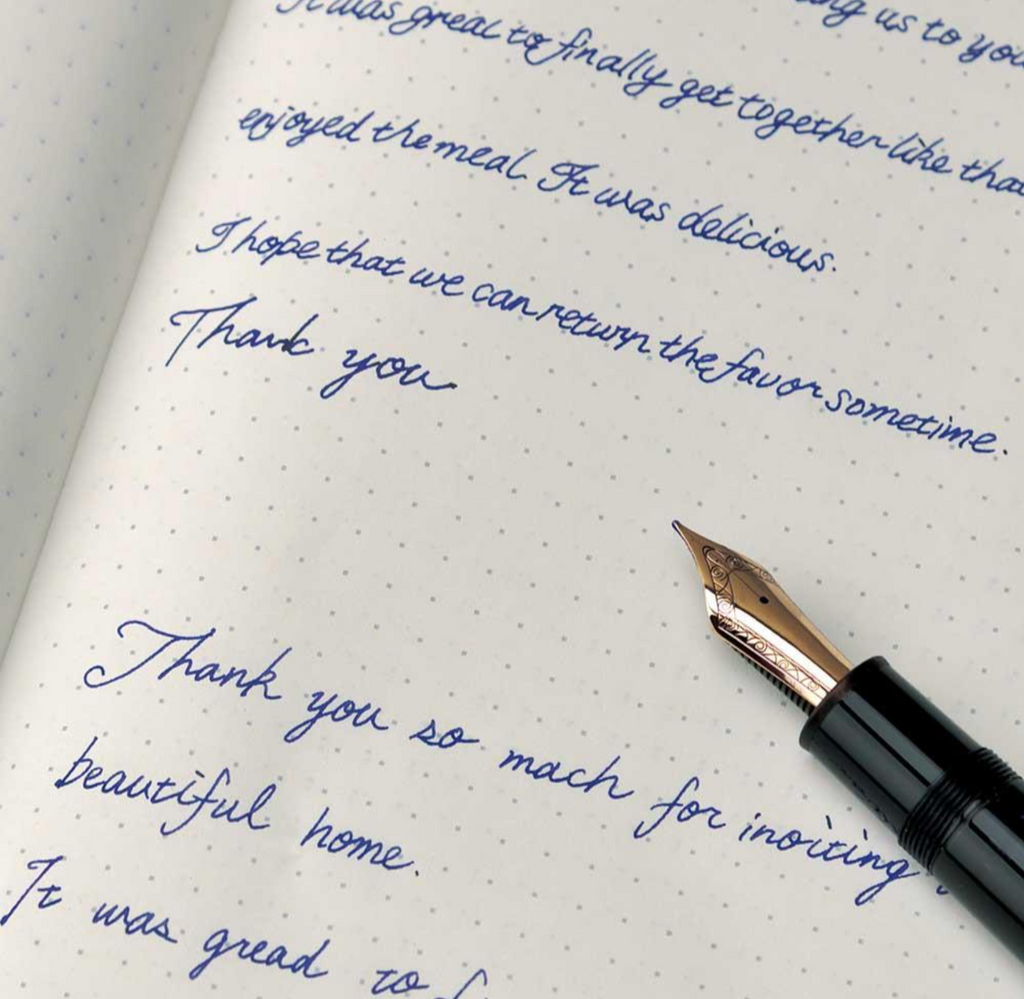 us to you
It was great to finally get together like that
enjoyed the meal. It was delicious.
I hope that we can return the favor sometime.
Thank you
Thank you so mach for inoiting
beautiful home.
It was gread to